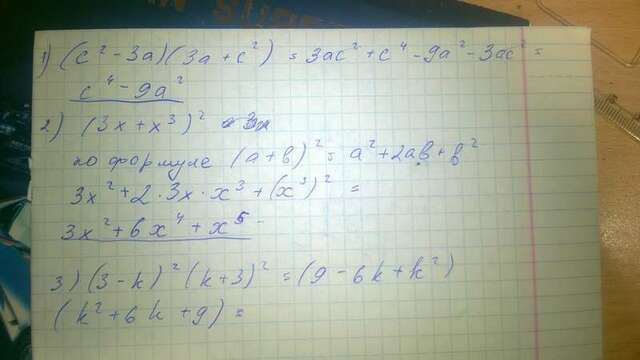 1) (c² - 3a)(3a + c²) = 3ac² + c⁴ - 9a² - 3ac² =
c⁴ - 9a²
2) (3x + x³)²
по формуле (a+b)² = a² + 2ab + b²
3x² + 2 · 3x · x³ + (x³)² =
3x² + 6x⁴ + x⁵
3) (3 - k)² (k + 3)² = (9 - 6k + k²)
(k² + 6k + 9) =